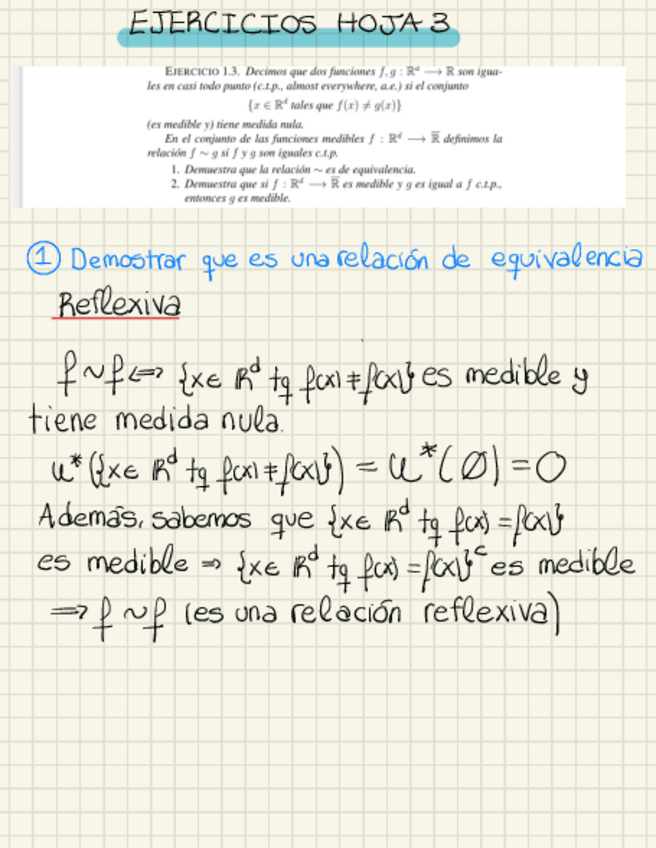 EJERCICIOS HOJA 3
EJERCICIO 1.3. Decimos que dos funciones f, g : ℝᵈ ⟶ ℝ son igua-
les en casi todo punto (c.t.p., almost everywhere, a.e.) si el conjunto
{x ∈ ℝᵈ tales que f(x) ≠ g(x)}
(es medible y) tiene medida nula.
En el conjunto de las funciones medibles f : ℝᵈ ⟶ ℝ̅ definimos la
relación f ∼ g si f y g son iguales c.t.p.
1. Demuestra que la relación ∼ es de equivalencia.
2. Demuestra que si f : ℝᵈ ⟶ ℝ̅ es medible y g es igual a f c.t.p.,
entonces g es medible.
① Demostrar que es una relación de equivalencia
Reflexiva
f∼f ⟺ {x∈ ℝᵈ tq f(x) ≠ f(x)} es medible y
tiene medida nula.
μ*({x∈ ℝᵈ tq f(x) ≠ f(x)}) = μ*(∅) = 0
Además, sabemos que {x∈ ℝᵈ tq f(x) = f(x)}
es medible ⇒ {x∈ ℝᵈ tq f(x) = f(x)}ᶜ es medible
⟹ f ∼ f (es una relación reflexiva)